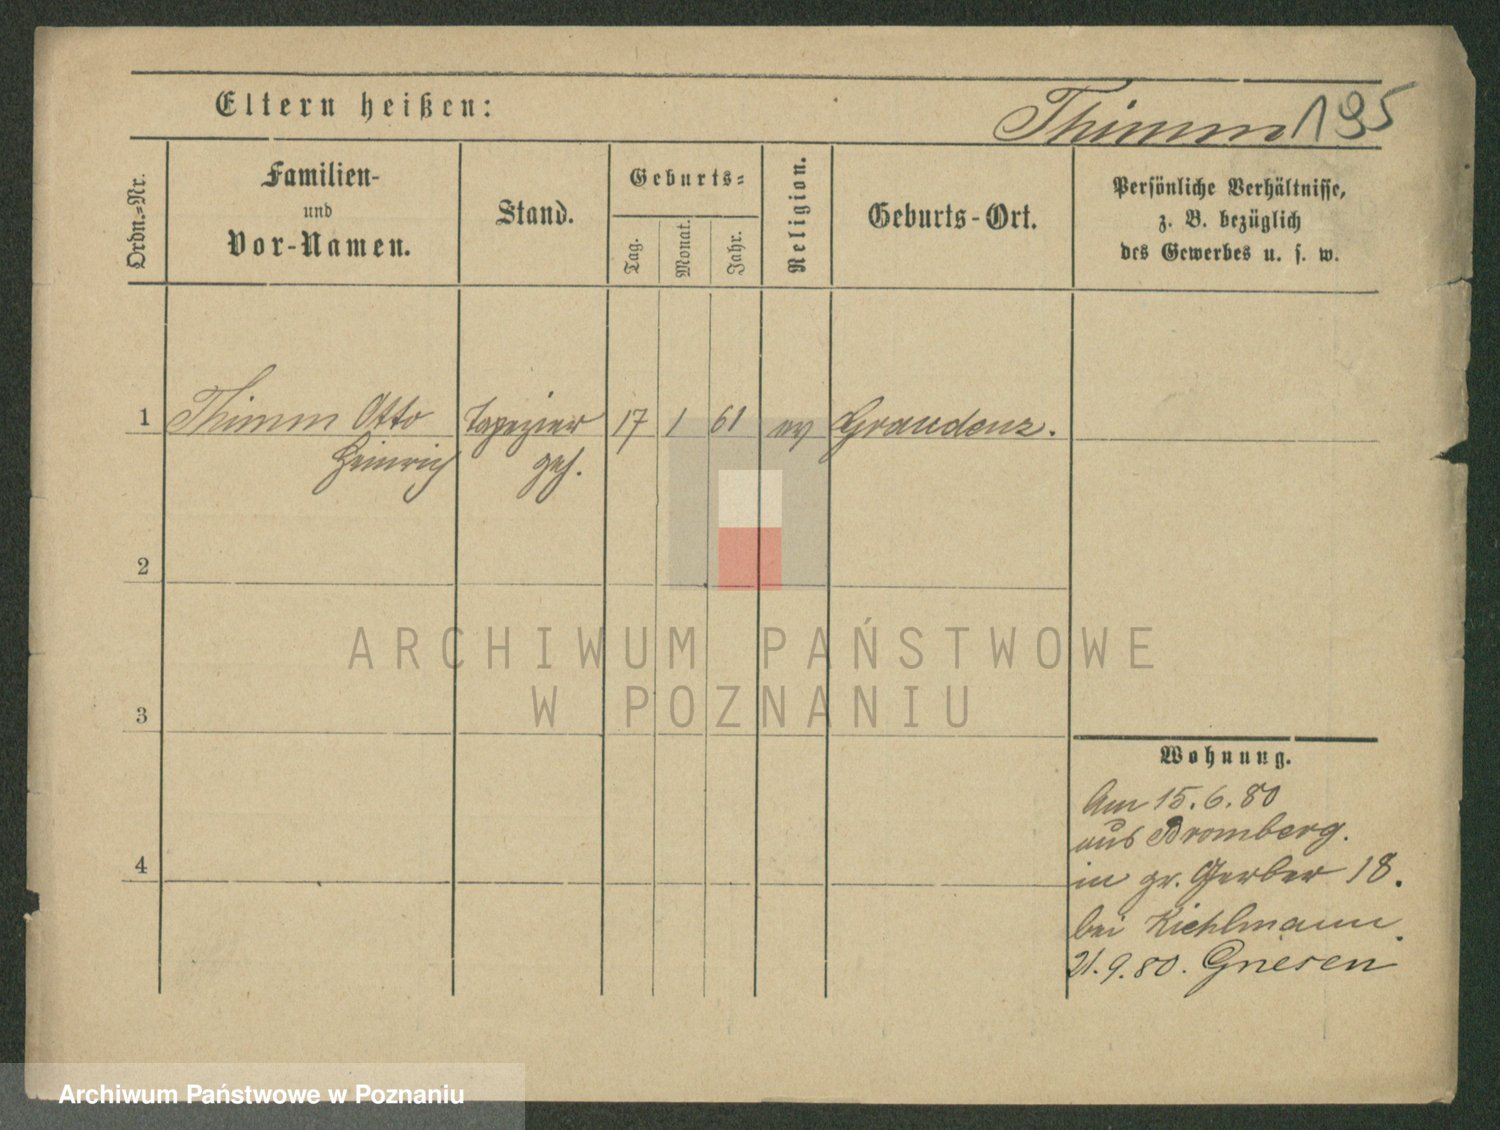 Eltern heißen:
Thimm 195
Ordn.=Nr.
Familien-
und
Vor-Namen.
Stand.
Geburts=
Tag.
Monat.
Jahr.
Religion.
Geburts-Ort.
Persönliche Verhältnisse,
z. B. bezüglich
des Gewerbes u. s. w.
1 Thimm Otto Tapezier 17 1 61 ev Graudenz.
Heinrich geh.
2
3
4
Wohnung.
Am 15.6.80
aus Bromberg.
in gr. Gerber 18.
bei Kiehlmann.
21.9.80. Gnesen
ARCHIWUM PAŃSTWOWE
W POZNANIU
Archiwum Państwowe w Poznaniu